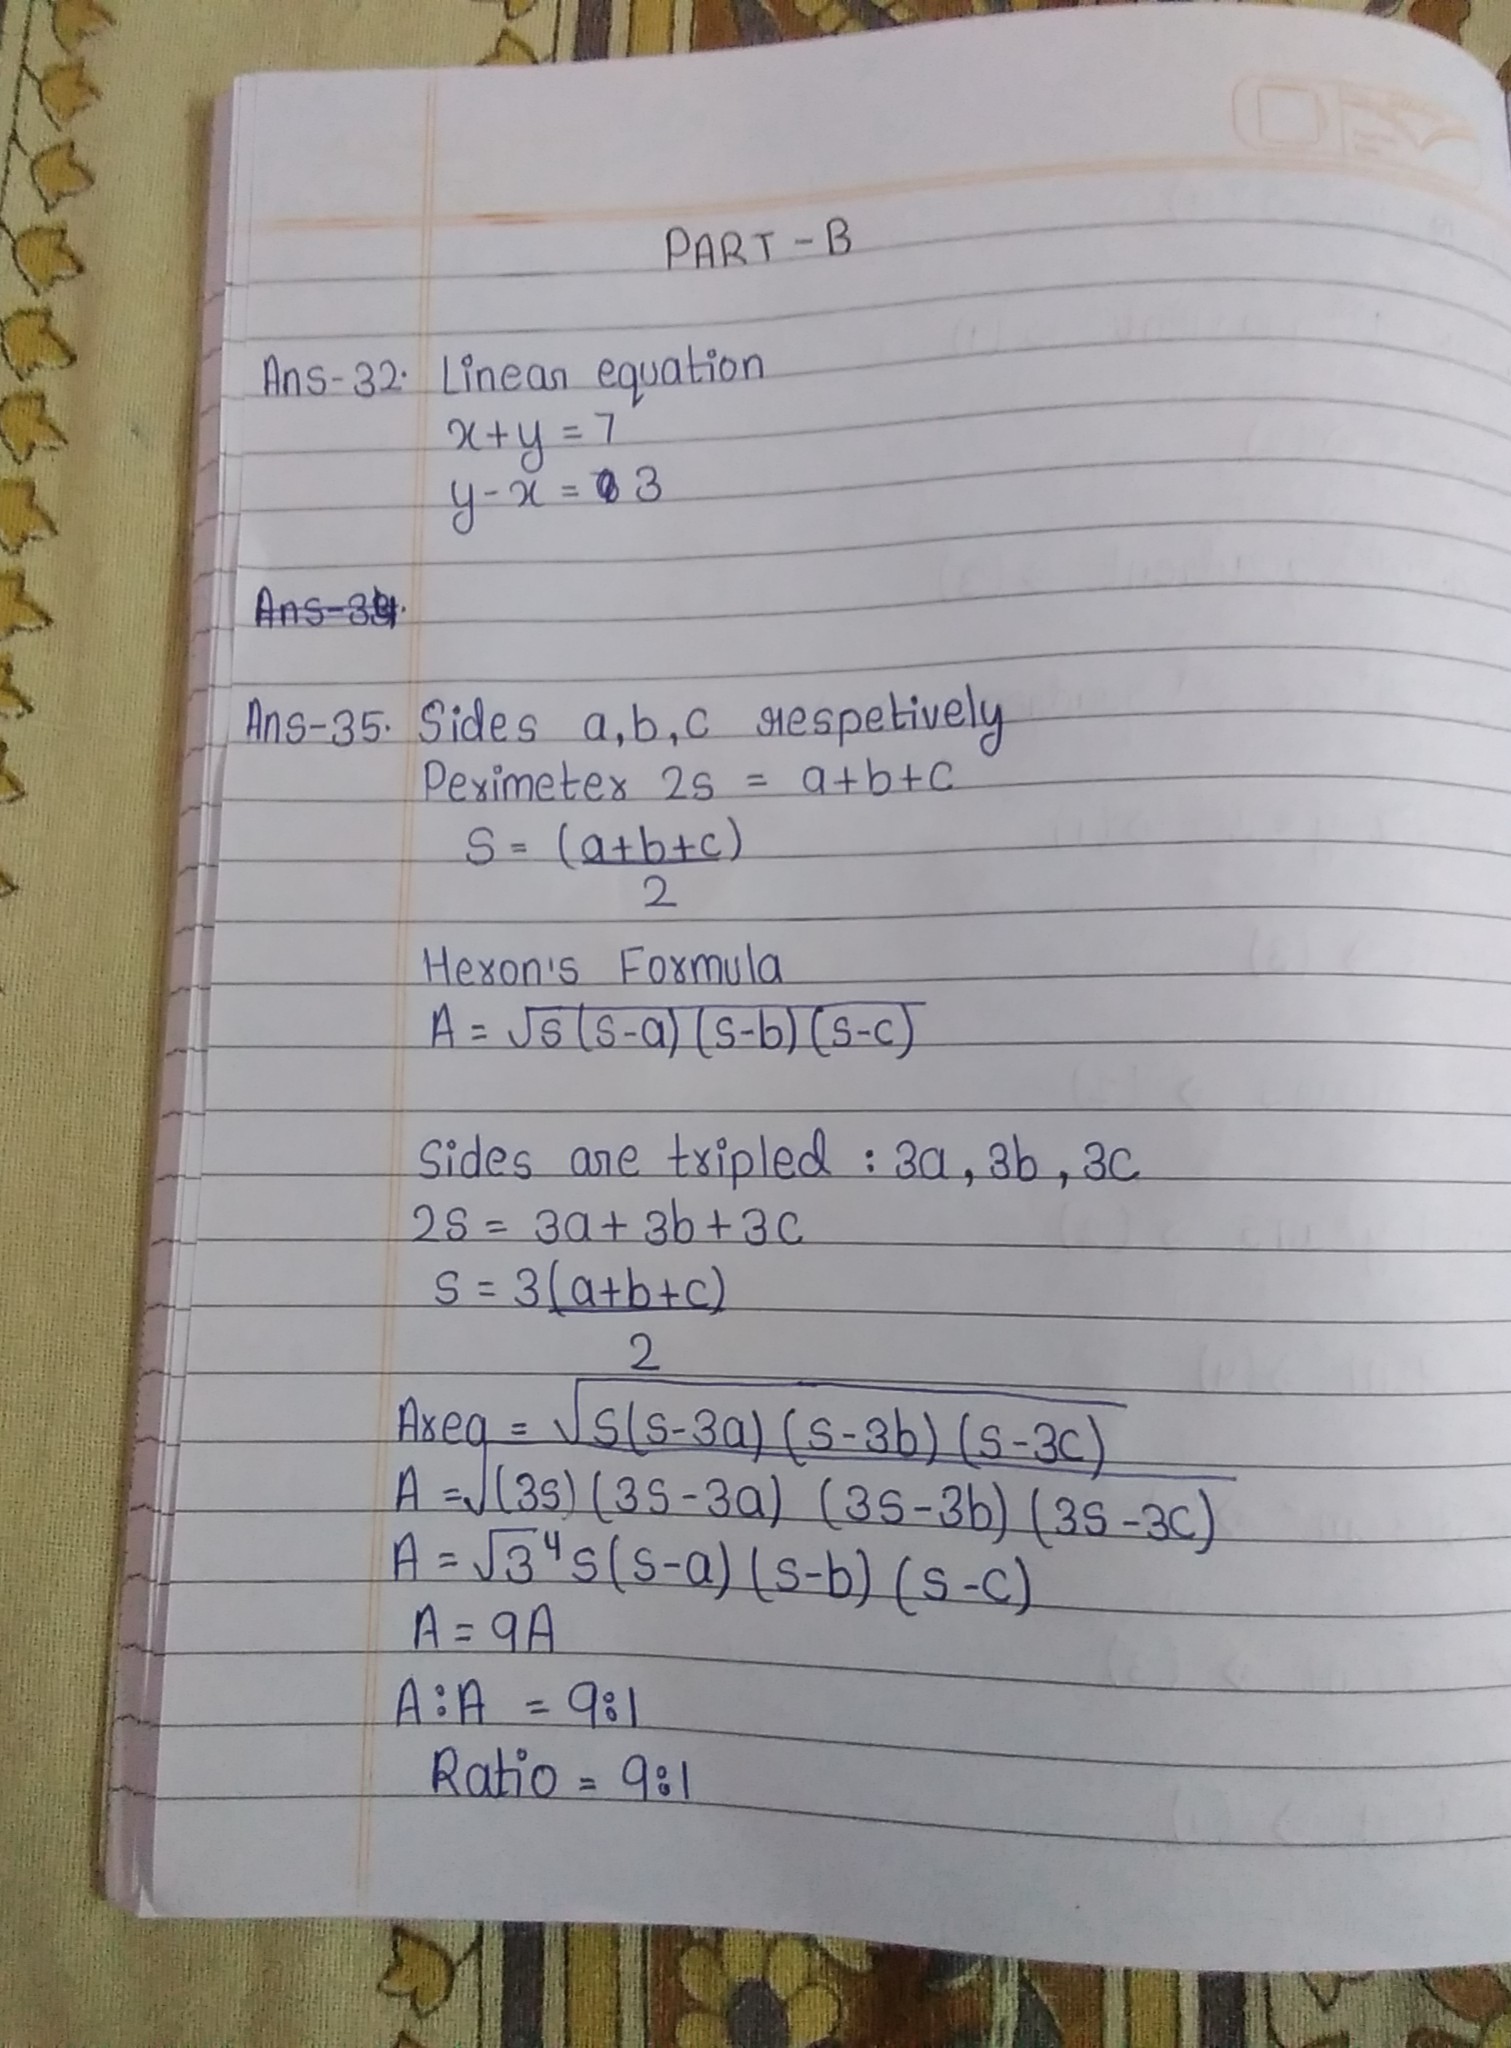 PART - B
Ans-32. Linear equation
x+y = 7
y-x = 3
Ans-34.
Ans-35. Sides a,b,c respetively
Perimeter 2s = a+b+c
S = (a+b+c)
2
Heron's Formula
A = √s(s-a)(s-b)(s-c)
Sides are tripled : 3a, 3b, 3c
2s = 3a+3b+3c
S = 3(a+b+c)
2
Area = √s(s-3a)(s-3b)(s-3c)
A = √(3s)(3s-3a) (3s-3b)(3s-3c)
A = √3⁴s(s-a)(s-b)(s-c)
A = 9A
A:A = 9:1
Ratio = 9:1